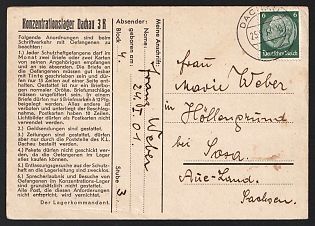 Konzentrationslager Dachau 3 K
Folgende Anordnungen sind beim
Schriftverkehr mit Gefangenen zu
beachten:
1.) Jeder Schutzhaftgefangene darf im
Monat zwei Briefe oder zwei Karten
von seinen Angehörigen empfangen
und an sie absenden. Die Briefe an
die Gefangenen müssen gut lesbar
mit Tinte geschrieben sein und
dürfen nur 15 Zeilen auf einer Seite
enthalten. Gestattet ist nur ein
Briefbogen normaler Größe. Brief-
umschläge müssen ungefüttert sein. In
einem Briefe dürfen nur 5 Briefmarken à 12 Pfg.
beigelegt werden. Alles andere ist
verboten und unterliegt der Beschlag-
nahme. Postkarten haben 10 Zeilen.
Lichtbilder dürfen als Postkarten nicht
verwendet werden.
2.) Geldsendungen sind gestattet.
3.) Zeitungen sind gestattet, dürfen
aber nur durch die Poststelle des K.L.
Dachau bestellt werden.
4.) Pakete dürfen nicht geschickt wer-
den, da die Gefangenen im Lager
alles kaufen können.
5.) Entlassungsgesuche aus der Schutz-
haft an die Lagerleitung sind zwecklos.
6.) Sprecherlaubnis und Besuche von
Gefangenen im Konzentrations-Lager
sind grundsätzlich nicht gestattet.
Alle Post, die diesen Anforderungen
nicht entspricht, wird vernichtet.
Der Lagerkommandant.
Absender:
Meine Anschrift:
Name: Franz Weber
geboren am: 24. II. 01.
Block 4. Stube 3
DACHAU
6
Deutsches Reich
Frau
Marie Weber
in Höllengrund
bei Sosa
Aue-Land.
Sachsen.